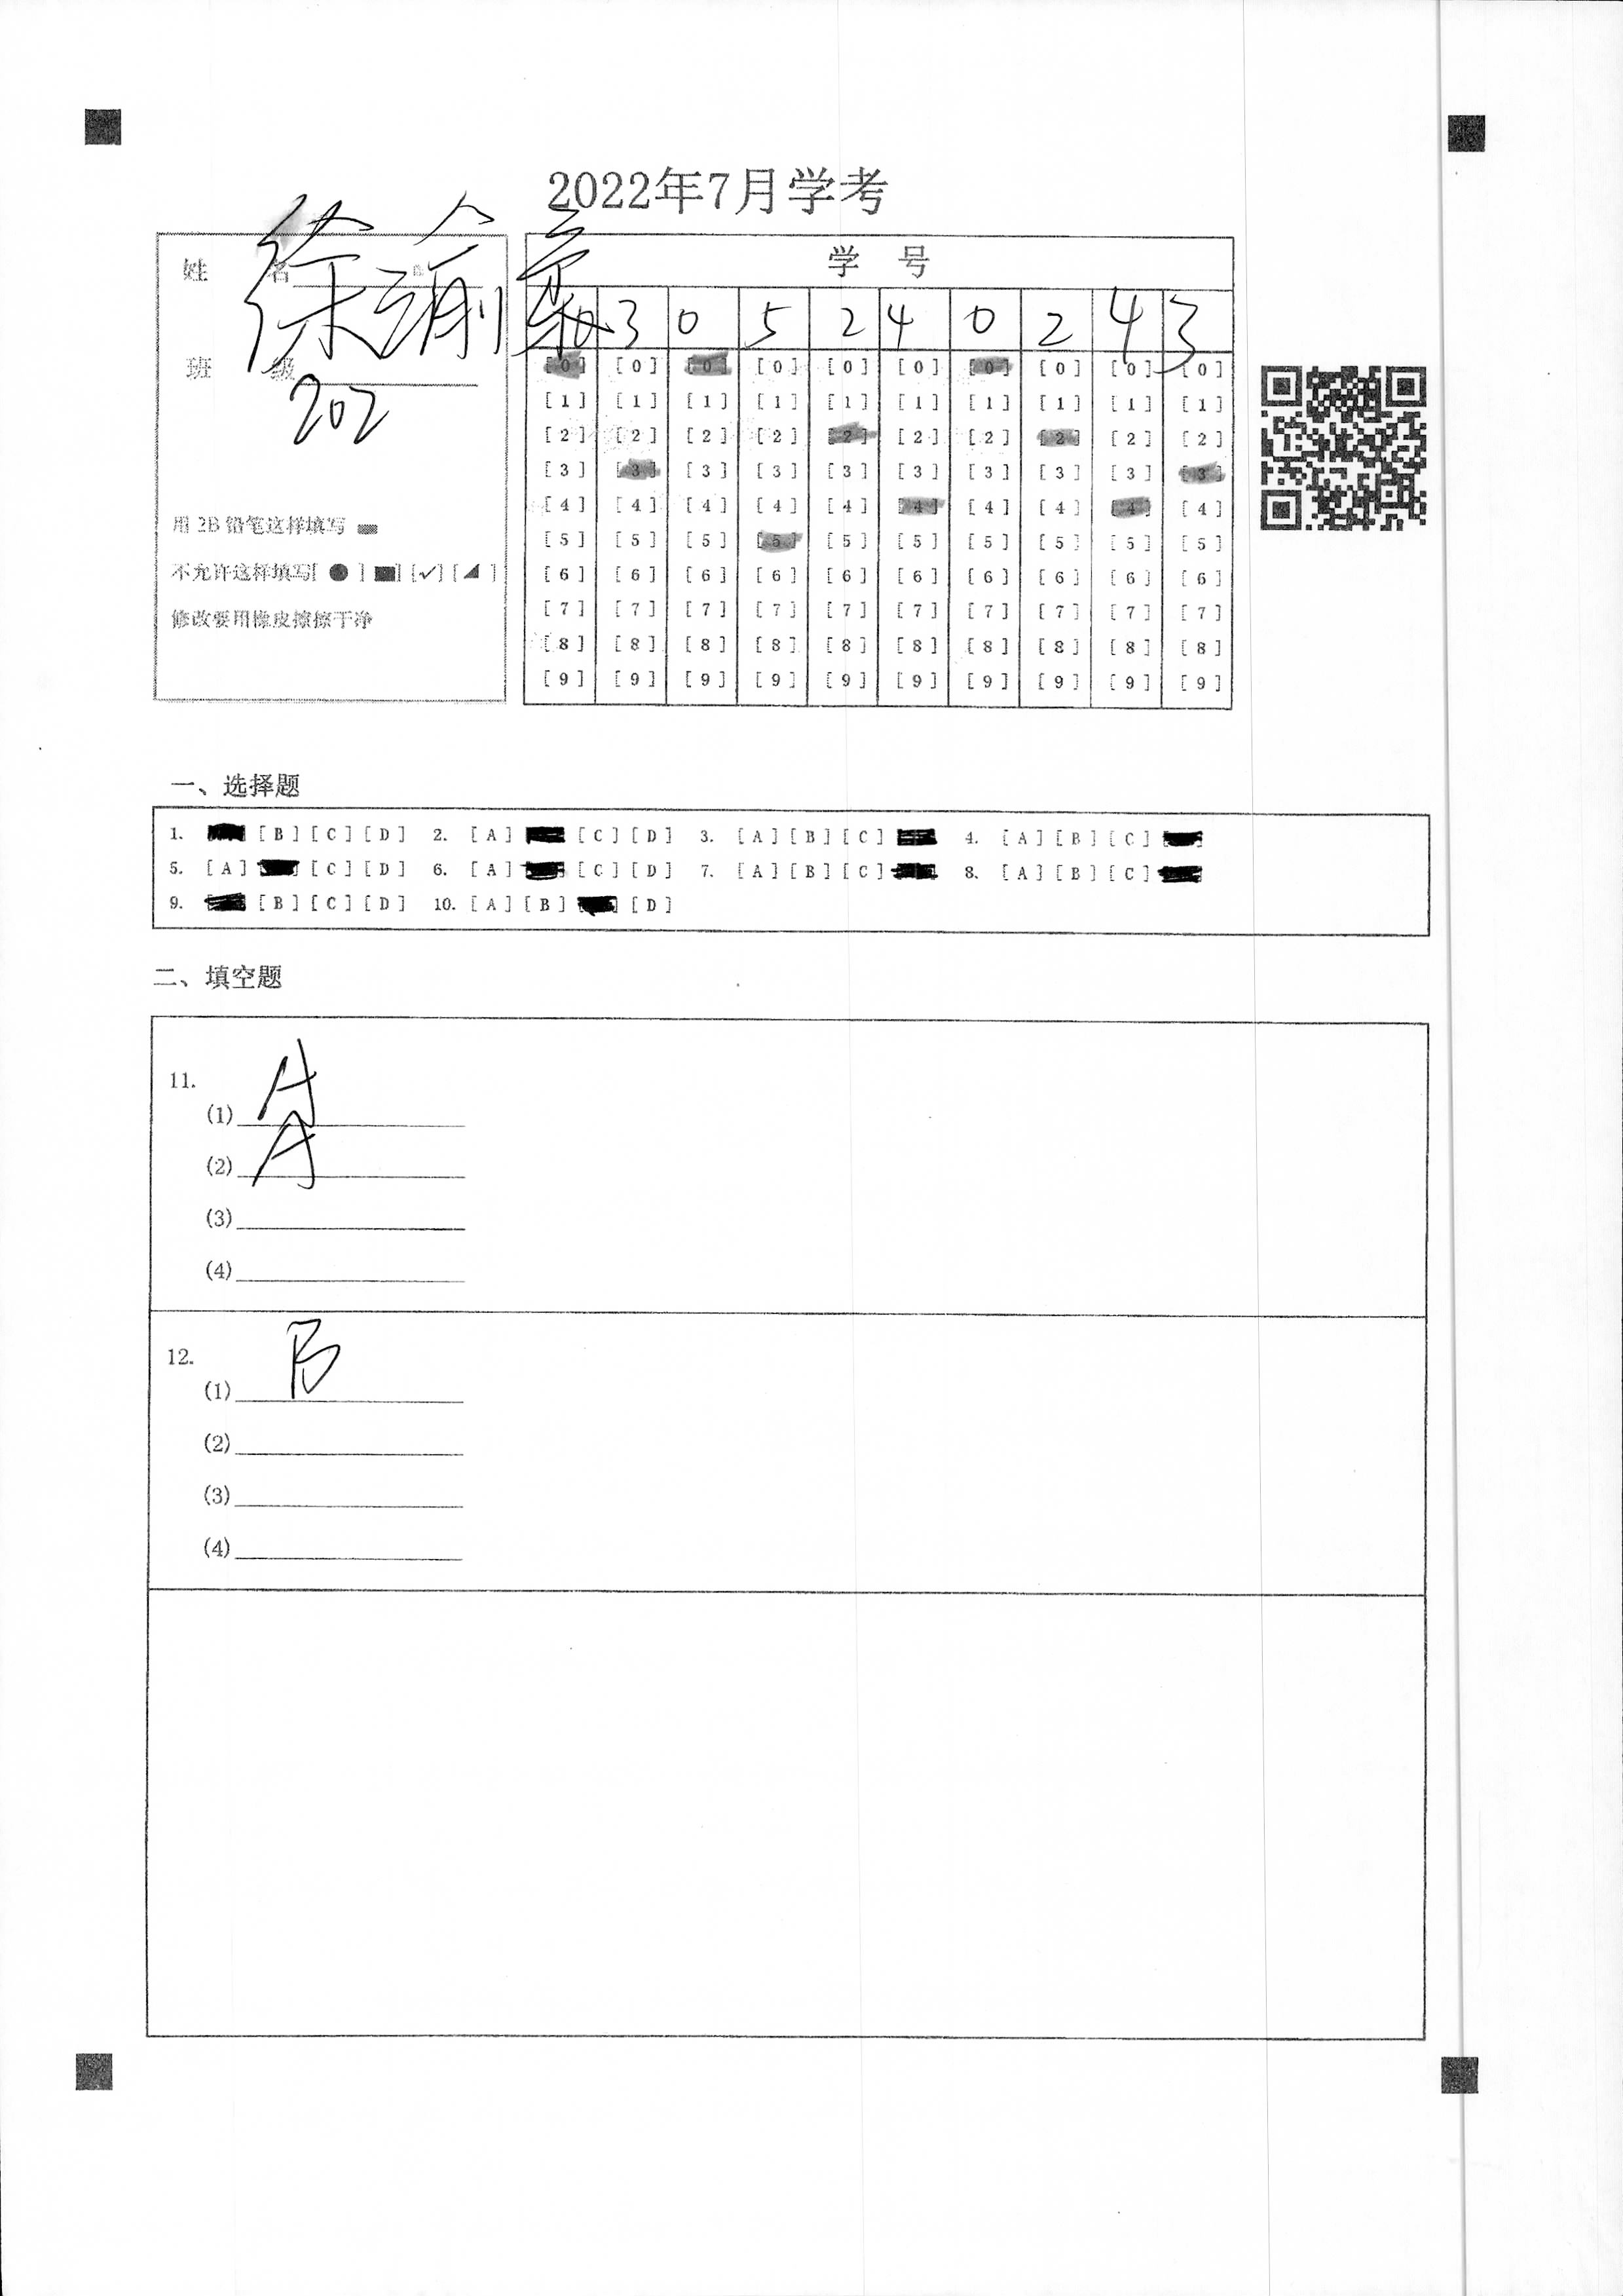 2022年7月学考
姓 名 徐瑜
班 级 202
用 2B 铅笔这样填写
不允许这样填写[ ● ] [■] [✓] [◢ ]
修改要用橡皮擦擦干净
学 号
0 3 0 5 2 4 0 2 4 3
[0] [0] [0] [0] [0] [0] [0] [0] [0] [0]
[1] [1] [1] [1] [1] [1] [1] [1] [1] [1]
[2] [2] [2] [2] [2] [2] [2] [2] [2] [2]
[3] [3] [3] [3] [3] [3] [3] [3] [3] [3]
[4] [4] [4] [4] [4] [4] [4] [4] [4] [4]
[5] [5] [5] [5] [5] [5] [5] [5] [5] [5]
[6] [6] [6] [6] [6] [6] [6] [6] [6] [6]
[7] [7] [7] [7] [7] [7] [7] [7] [7] [7]
[8] [8] [8] [8] [8] [8] [8] [8] [8] [8]
[9] [9] [9] [9] [9] [9] [9] [9] [9] [9]
一、选择题
1. [B] [C] [D] 2. [A] [C] [D] 3. [A] [B] [C] 4. [A] [B] [C]
5. [A] [C] [D] 6. [A] [C] [D] 7. [A] [B] [C] 8. [A] [B] [C]
9. [B] [C] [D] 10. [A] [B] [D]
二、填空题
11.
(1) A
(2) A
(3)
(4)
12.
(1) B
(2)
(3)
(4)